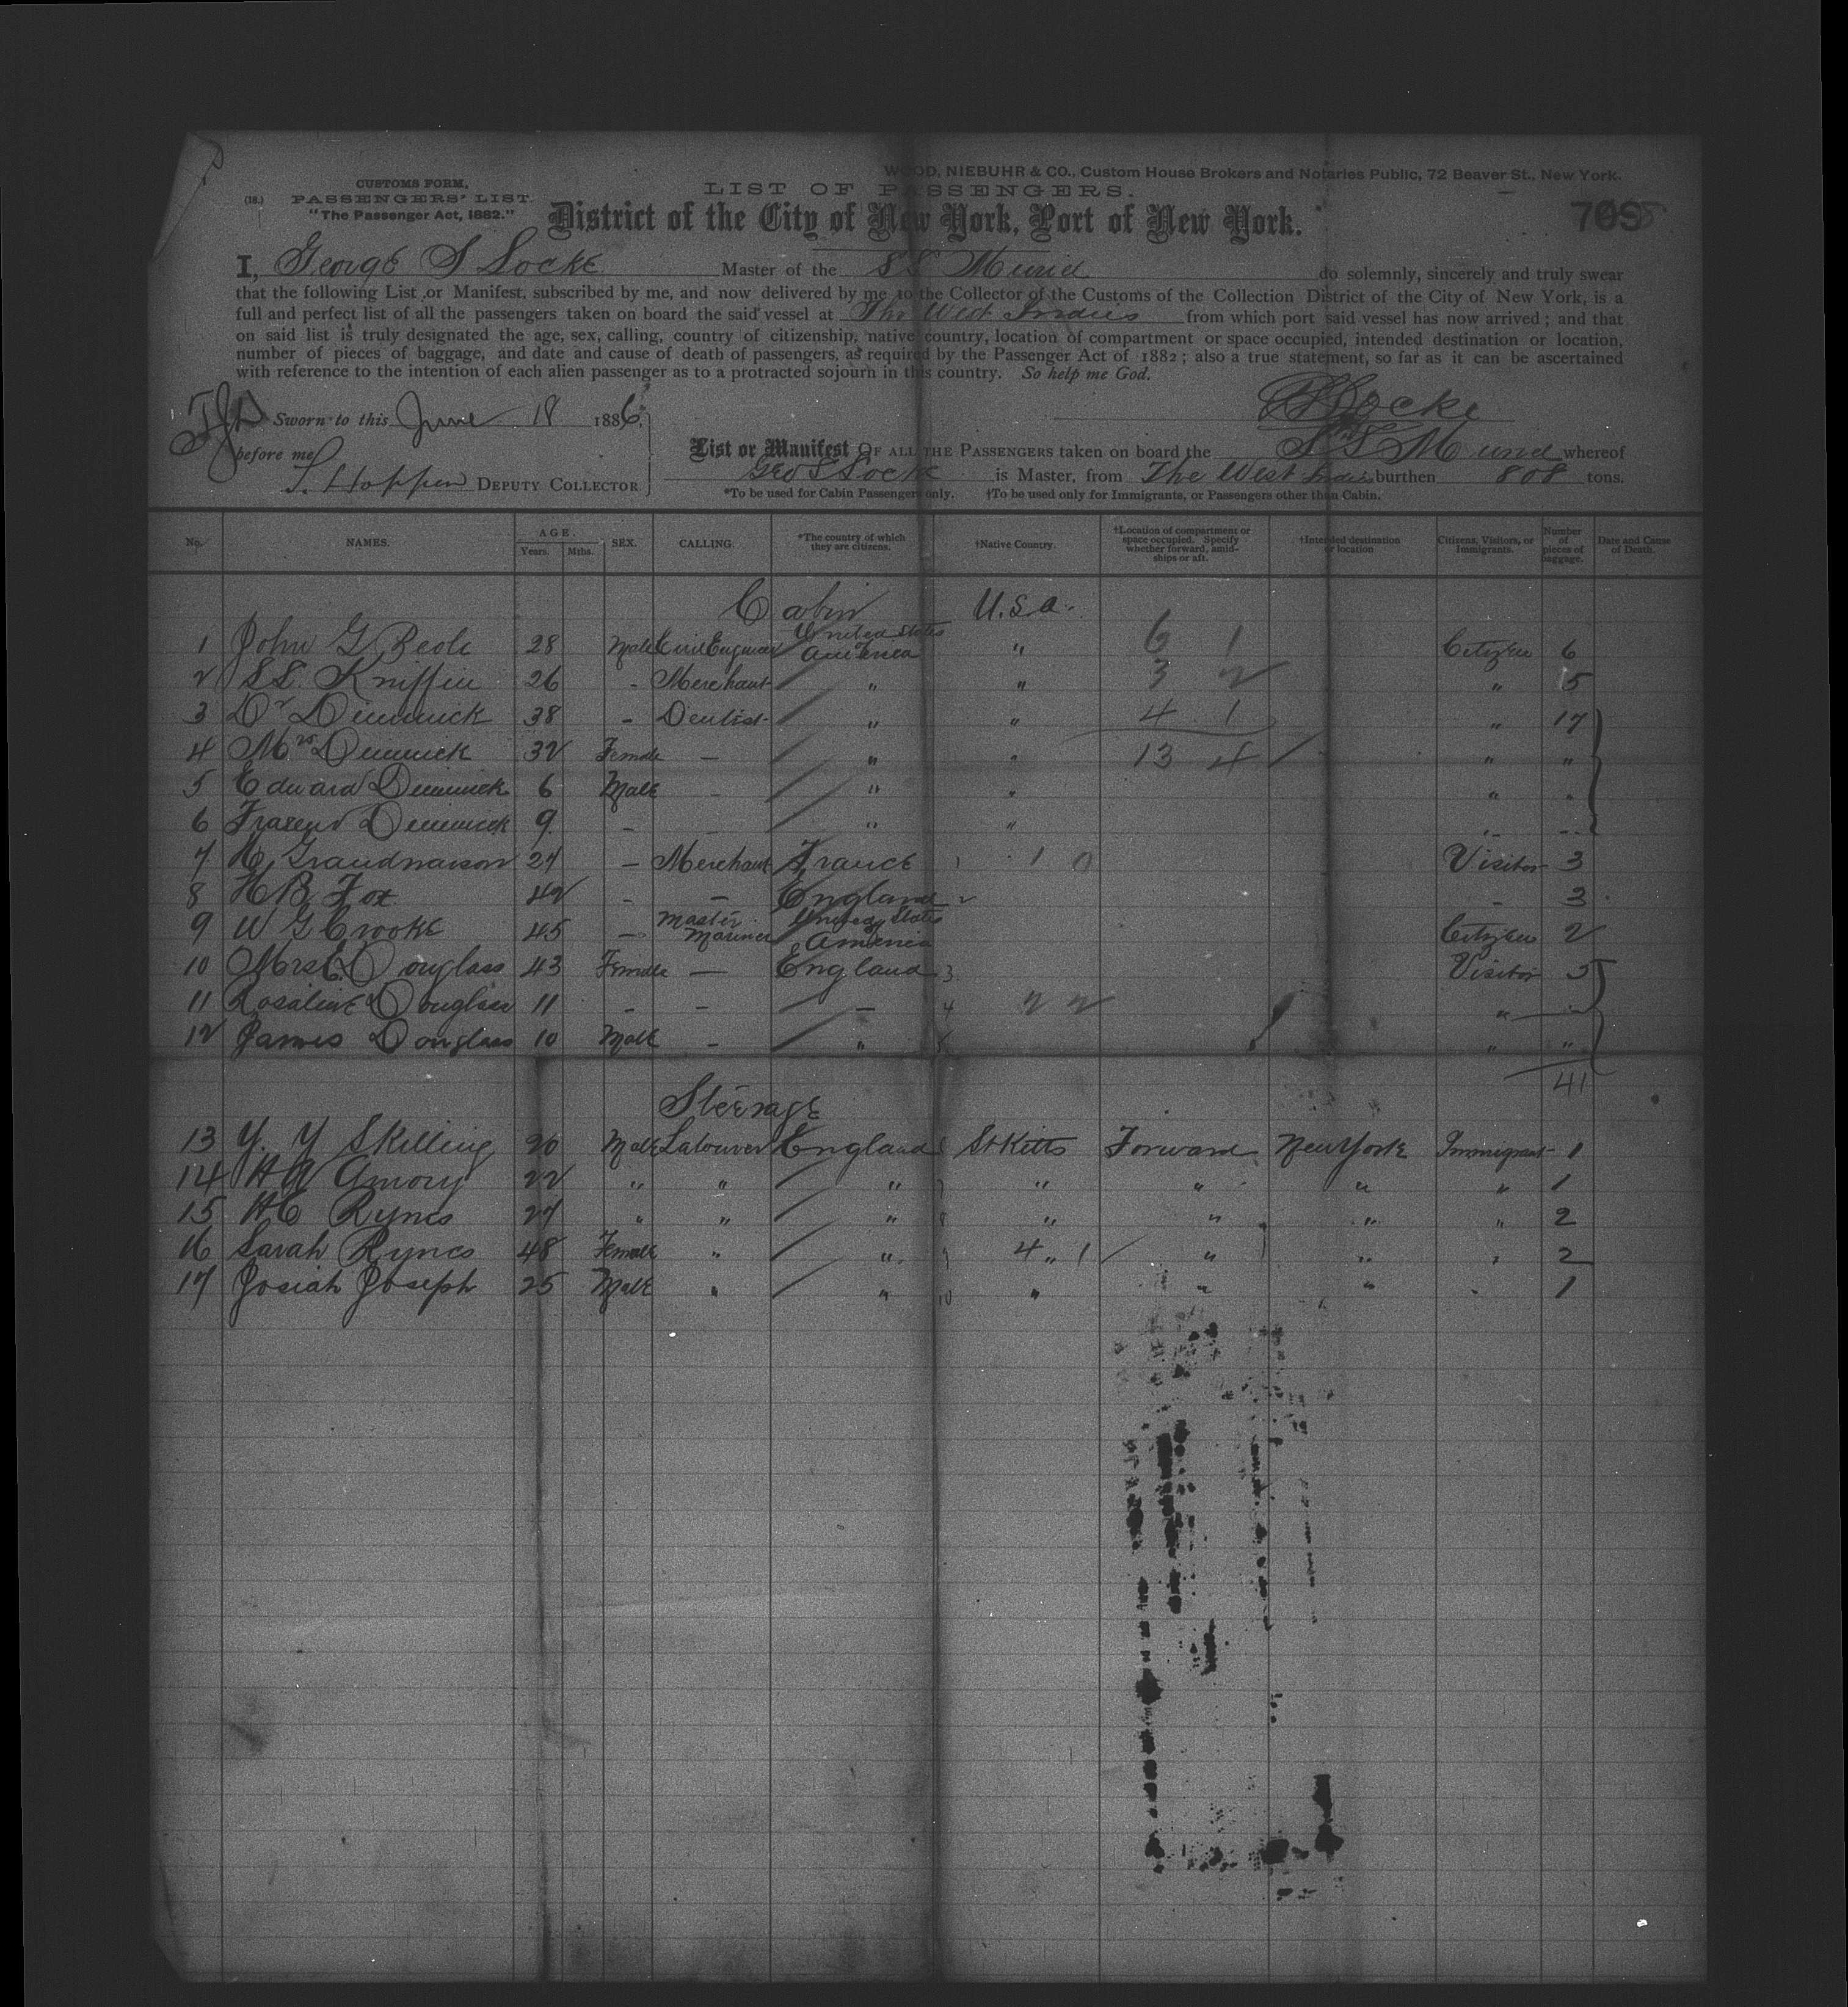 WOOD, NIEBUHR & CO., Custom House Brokers and Notaries Public, 72 Beaver St., New York.
CUSTOMS FORM,
LIST OF PASSENGERS.
(18.) PASSENGERS' LIST.
"The Passenger Act, 1882."
District of the City of New York, Port of New York.
709
I, George S Locke Master of the SS Muriel do solemnly, sincerely and truly swear
that the following List or Manifest, subscribed by me, and now delivered by me to the Collector of the Customs of the Collection District of the City of New York, is a
full and perfect list of all the passengers taken on board the said vessel at The West Indies from which port said vessel has now arrived; and that
on said list is truly designated the age, sex, calling, country of citizenship, native country, location of compartment or space occupied, intended destination or location,
number of pieces of baggage, and date and cause of death of passengers, as required by the Passenger Act of 1882; also a true statement, so far as it can be ascertained
with reference to the intention of each alien passenger as to a protracted sojourn in this country. So help me God.
Locke
Sworn to this June 18 1886,
before me
Hoppen DEPUTY COLLECTOR
List or Manifest OF ALL THE PASSENGERS taken on board the whereof
Geo S Locke is Master, from The West Indies burthen 808 tons.
*To be used for Cabin Passengers only. †To be used only for Immigrants, or Passengers other than Cabin.
No. NAMES. AGE. Years. Mths. SEX. CALLING. *The country of which they are citizens. †Native Country. †Location of compartment or space occupied. Specify whether forward, amidships or aft. †Intended destination or location Citizens, Visitors, or Immigrants. Number of pieces of baggage. Date and Cause of Death.
Cabin U.S.A.
1 John G Beole 28 Male Civil Engineer United States of America " 6 1 Citizen 6
2 S.S. Kniffin 26 - Merchant " " 3 2 " 5
3 Dr Dimmick 38 - Dentist " " 4 1 " 17
4 Mrs Dimmick 32 Female - " " 13 4 " "
5 Edward Dimmick 6 Male - " " " "
6 Dimmick 9 - - " "
7 H. Grandmaison 24 - Merchant France 1 1 0 Visitor 3
8 H B Fox 42 - - England 2 - 3
9 W G Crooke 45 - Master Mariner United States of America Citizen 2
10 Mrs E Douglass 43 Female - England 3 Visitor 5
11 Rosaline Douglass 11 - - - 4 2 2 " -
12 James Douglass 10 Male - " 5 " "
41
Steerage
13 Y. Y Skelling 20 Male Labourer England St Kitts Forward New York Immigrant 1
14 H W Amory 22 " " " 7 " " " " 1
15 H E Rynes 27 " " " 8 " " " " 2
16 Sarah Rynes 48 Female " " 9 4 " 1 " " 2
17 Josiah Joseph 25 Male " " 10 " " " 1